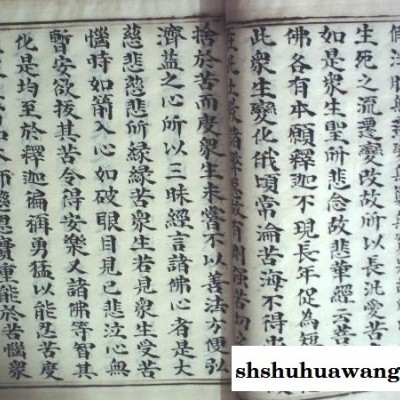 生死之流遷變改故所以長沉愛苦
如是衆生聖所悲念故悲華經云
佛各有本願釋迦不現長年促為短
此衆生變化俄頃常淪苦海不得
捨於苦而度衆生未嘗不以善法方便弘
濟益之心所以三昧經言諸佛心者是大
慈悲慈悲所緣緣苦衆生若見衆生受苦
惱時如箭入心如破眼目見已悲泣心無
暫安欲拔其苦令得安樂又諸佛等智其
化是均至於釋迦徧稱勇猛以能忍苦度
師慈恩實重能於苦惱衆
shshuhuawang